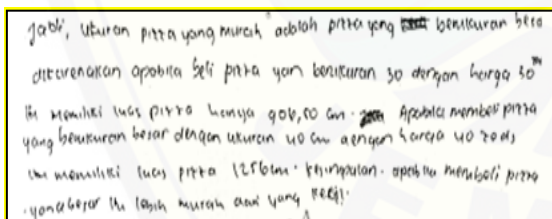 Jadi, ukuran pizza yang murah adalah pizza yang berukuran besar
dikarenakan apabila beli pizza yan berukuran 30 dengan harga 30
itu memiliki luas pizza hanya 906,50 cm. Apabila membeli pizza
yang berukuran besar dengan ukuran 40 cm dengan harga 40 zeds,
itu memiliki luas pizza 1256cm. kesimpulan. apabila membeli pizza
yang besar itu lebih murah dari yang kecil.